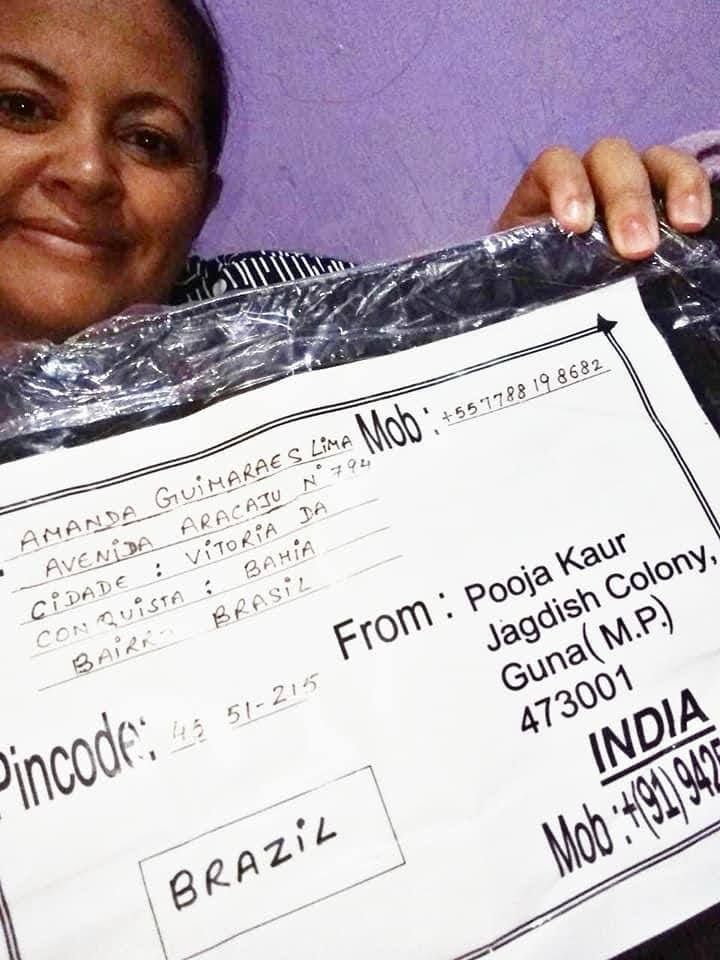 AMANDA GUIMARAES LIMA
AVENIDA ARACAJU N° 794
CIDADE : VITORIA DA
CONQUISTA : BAHIA
BRASIL
Mob : +557788198682
From : Pooja Kaur
Jagdish Colony,
Guna(M.P.)
473001
INDIA
Mob :+(91)942
Pincode: 45 51-215
BRAZIL